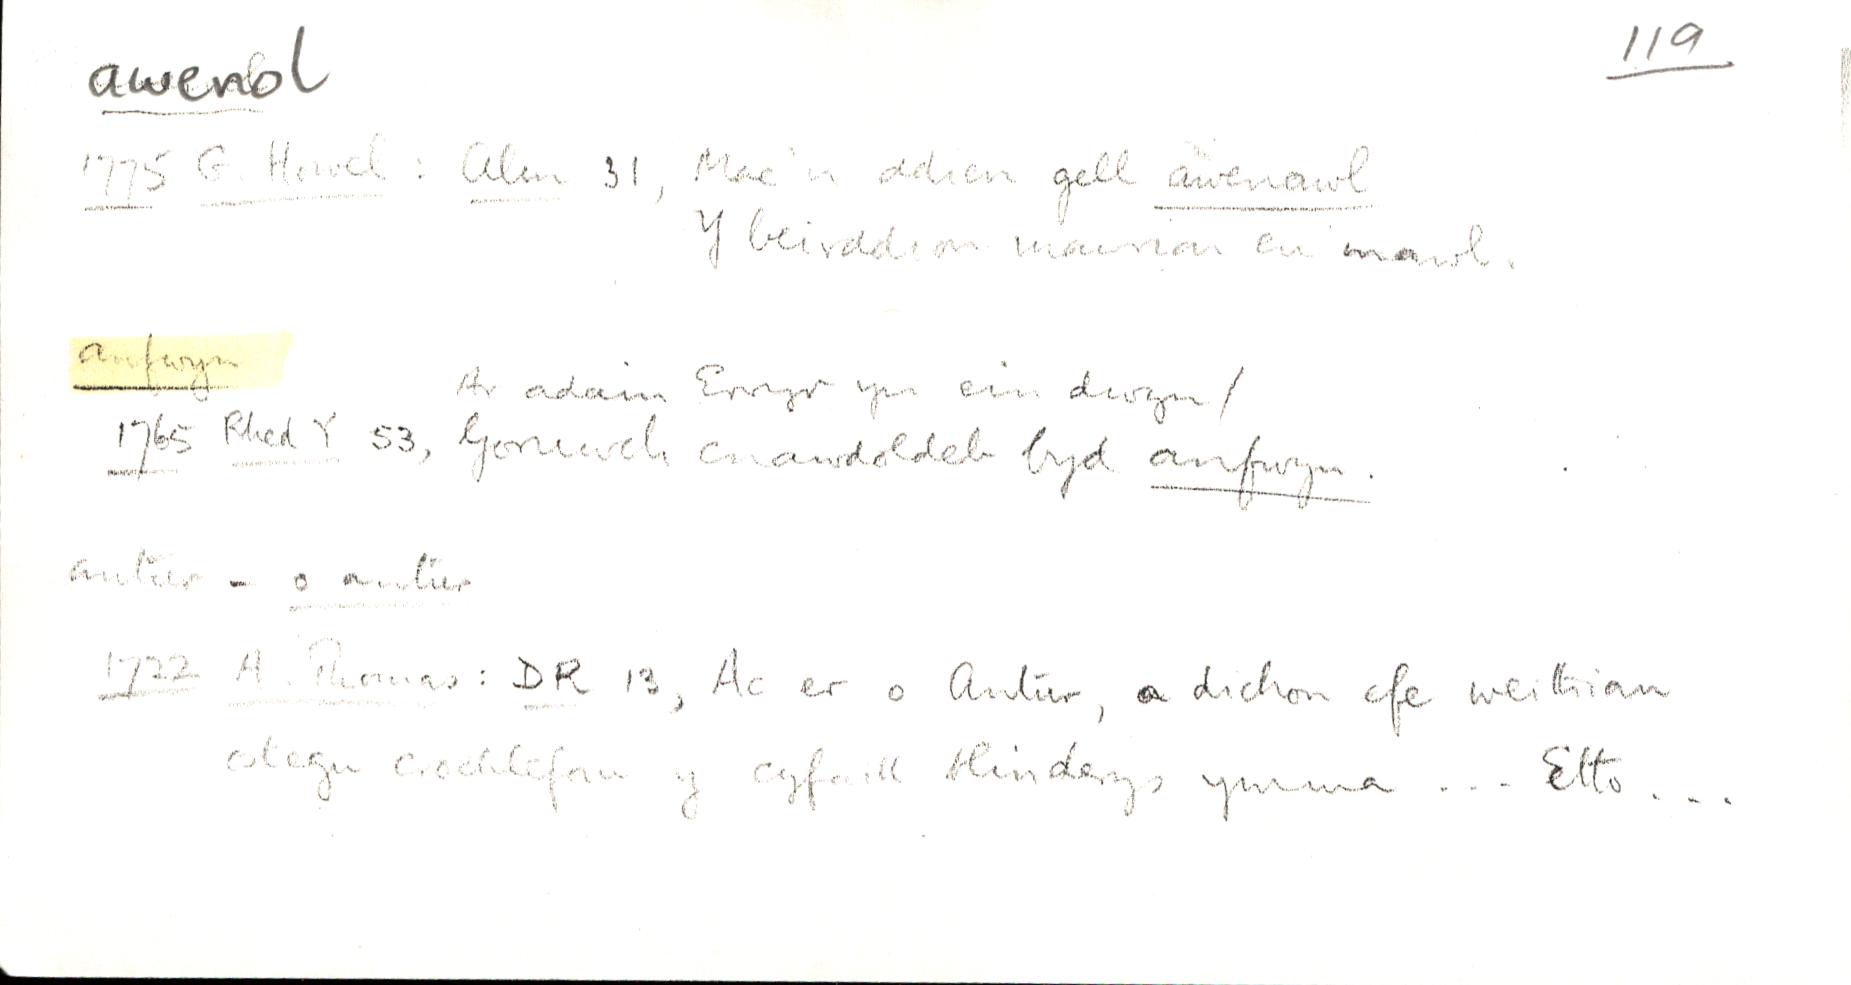 119
awenol
1775 G. Howel: Alm 31, Mae'n addien gell awenawl
Y beirddion mawrion eu mawl.
anfwyn
Ar adain Erryr yn ein dwyn/
1765 Rhed Y 53, Goruwch cnawdoldeb byd anfwyn.
antur - o antur
1722 A. Thomas: DR 13, Ac er o Antur, a dichon efe weithian
ostegu crochlefau y cyfaill Hinderys ymma ... Etto ...